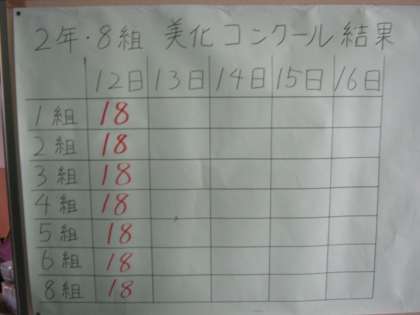 2年・8組 美化コンクール結果
12日 13日 14日 15日 16日
1組 18
2組 18
3組 18
4組 18
5組 18
6組 18
8組 18